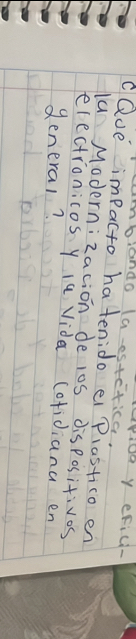 la estética
¿Qué impacto ha tenido el plástico en
la Modernización de los dispositivos
electronicos y la vida cotidiana en
general?